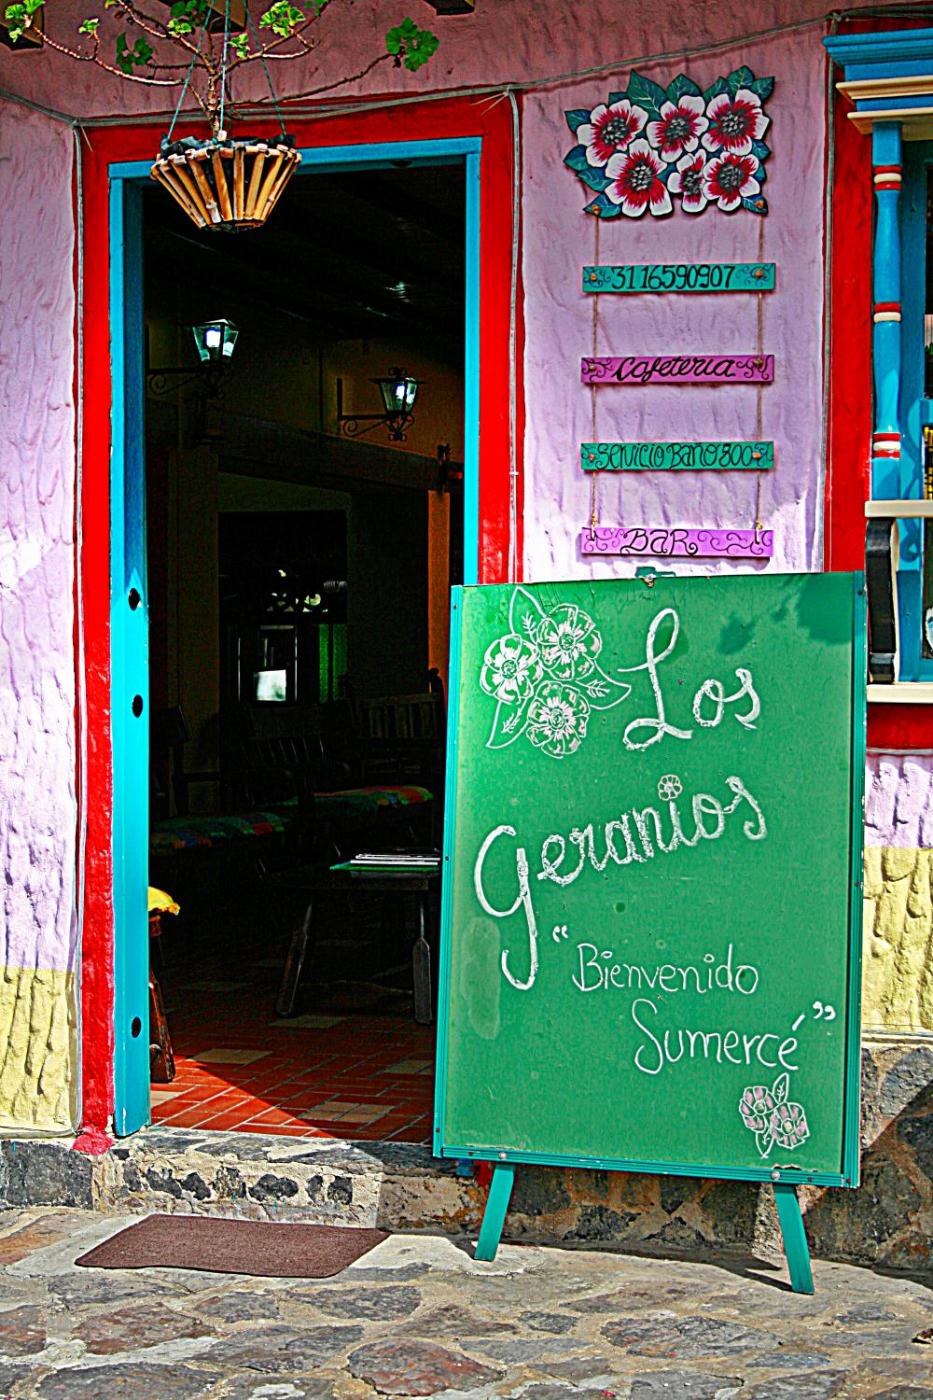 3116590907
Cafeteria
Servicio Baño 800
BAR
Los
Geranios
"Bienvenido
Sumercé"